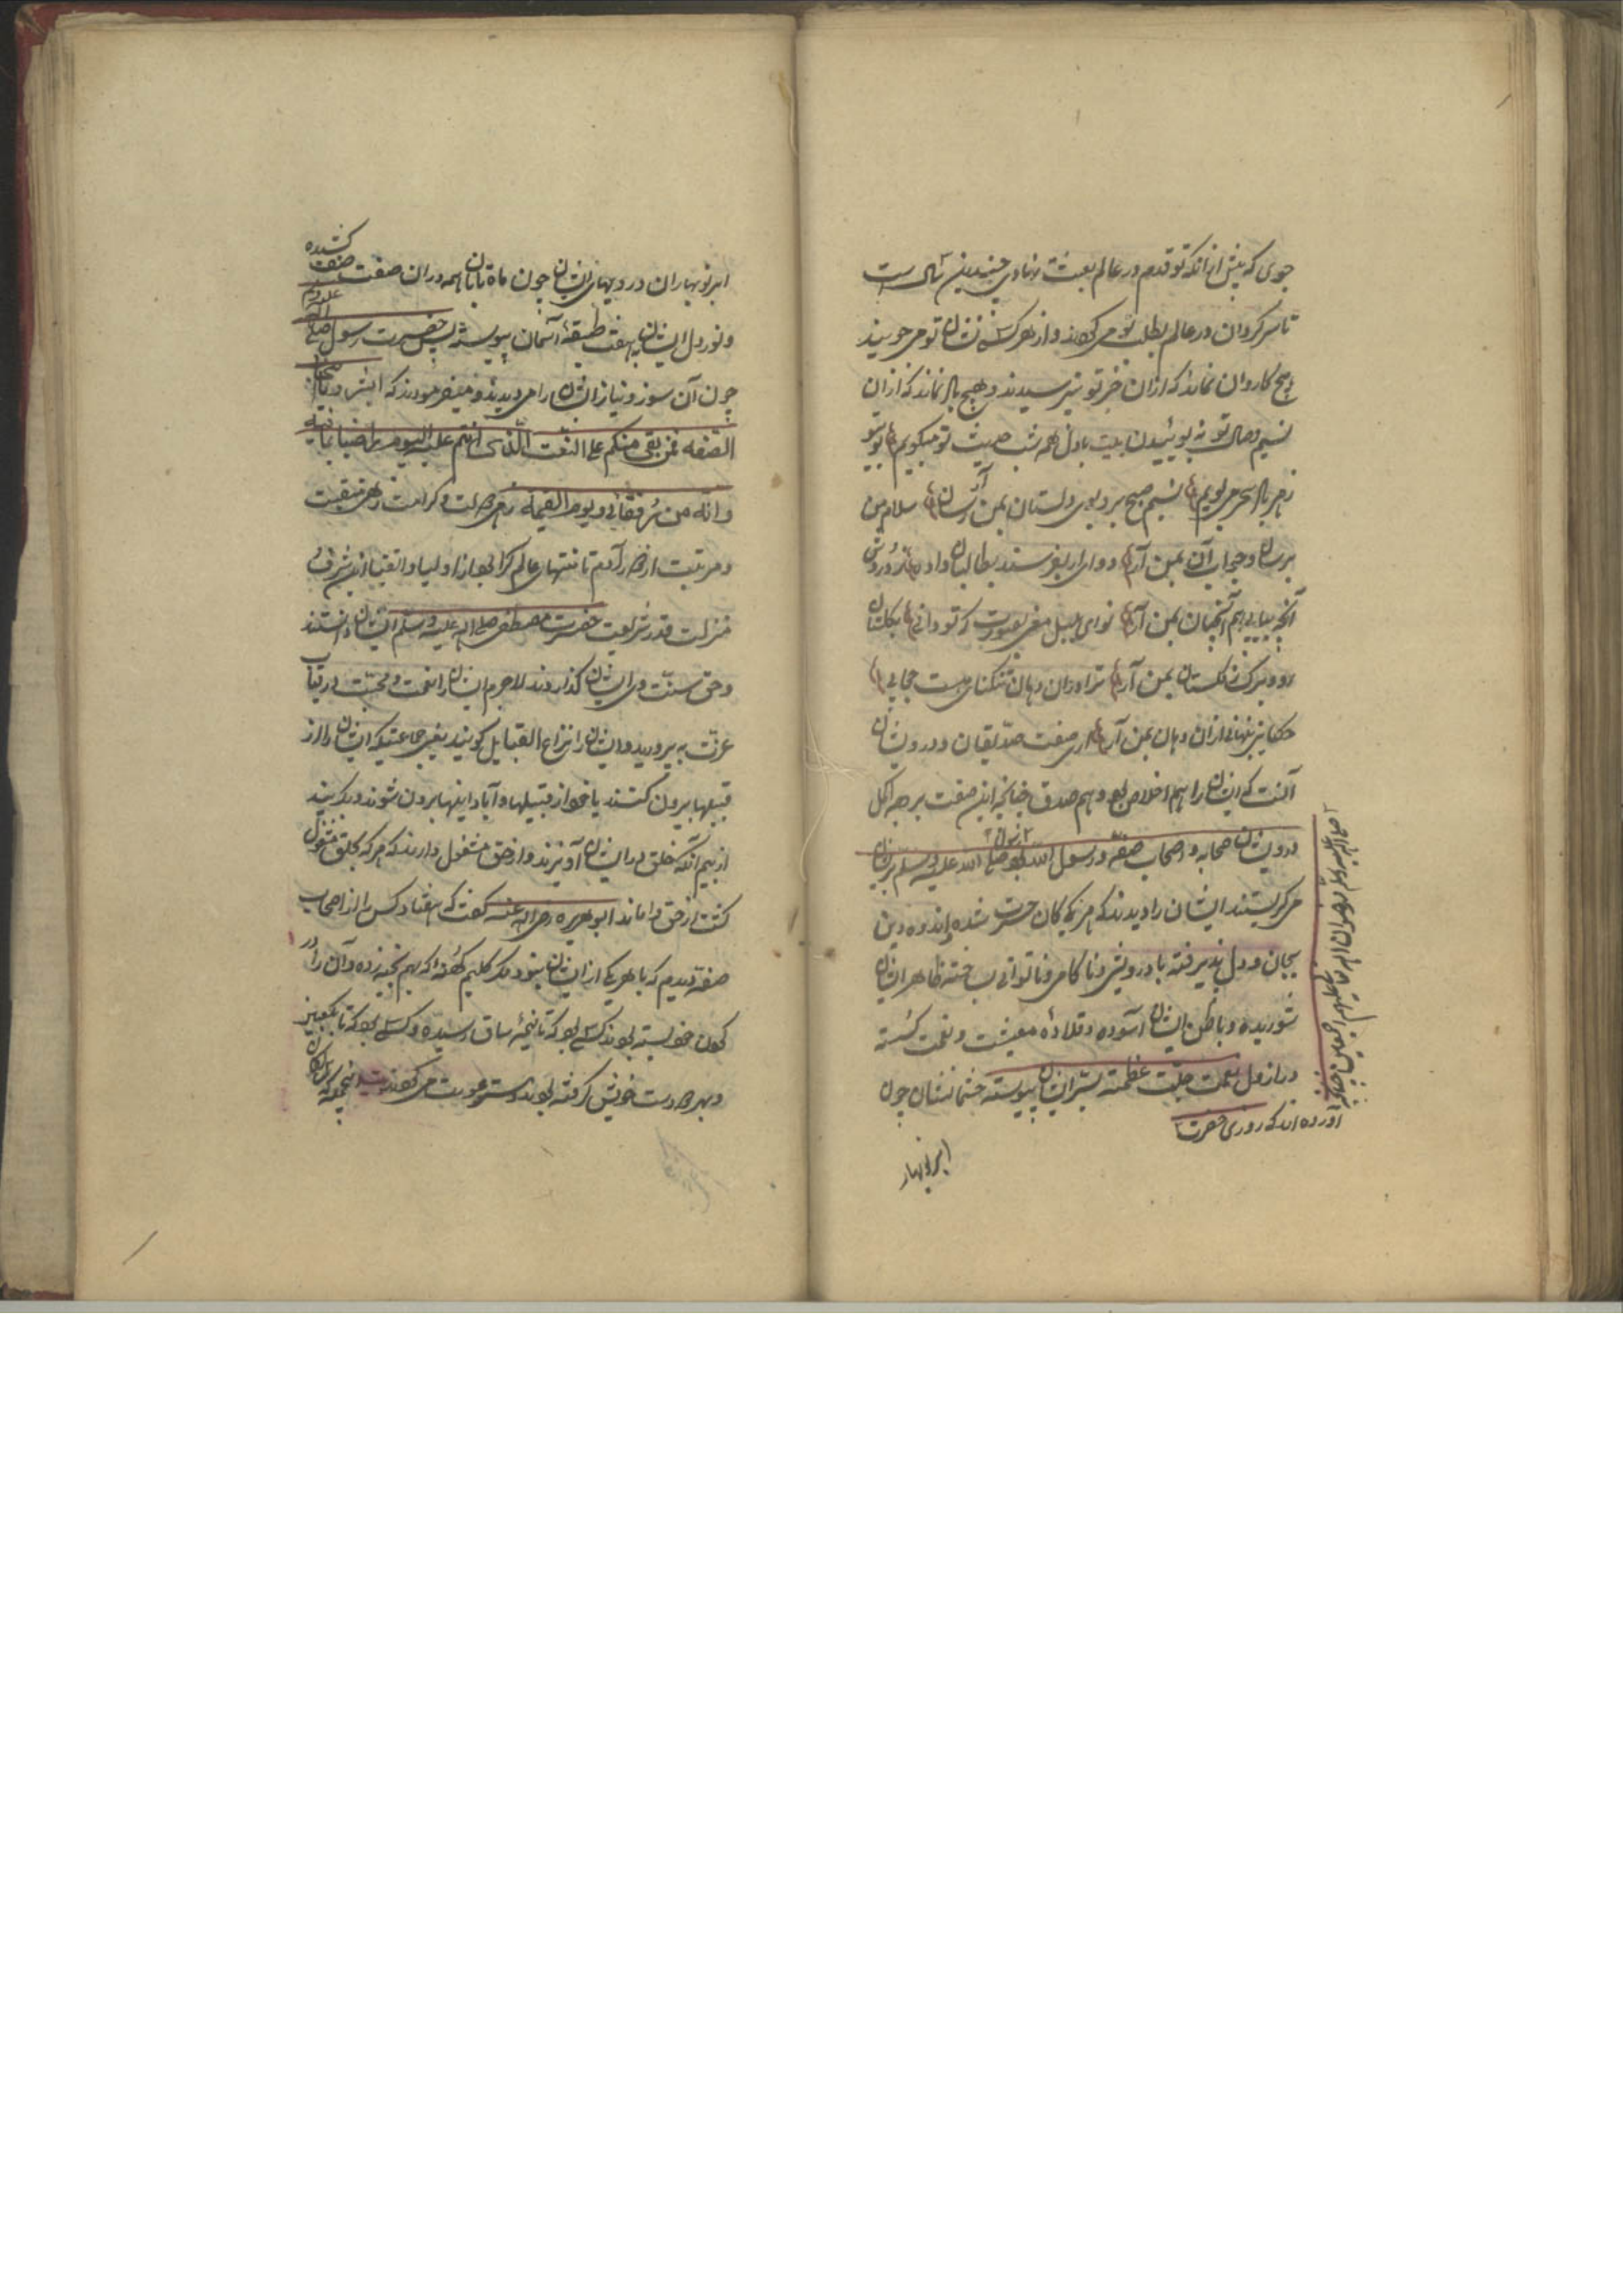 جوی که پیش از آنکه تو قدم در عالم بعثت نهادی چندین سال است
تا سرکردان در عالم بطلب تو می کردند و از هر کسی نشان تو می جویند
هیچ کاروان نماند که ازان خبر تو نپرسیدند و هیچ باد نماند که ازان
نسیم وصال تو نه بوئیدند بیت بادل همه شب حدیث تو میکویم
ز هر باد سحر می بویم نسیم صبح بر و بوی دلستان بمن آر سلام من
برسان و جواب آن بمن آر دوای ار بفرستند بطالبان داده
آنچه بیابی هم آنچنان بمن آر نوای بلبل که تو دانی
رو و برک ز کلستان بمن آر ترا دران دهان تنکنای هست
حکایتی نهانی ازان دهان بمن آر صفت صدیقان و درویشان
آنست که ایشان را هم اخلاص بود و هم صدق چنانچه این صفت بر وجه اکمل
درویشان صحابه و اصحاب صفه رسول الله بود صلی الله علیه وسلم
می کریستند ایشان را دیدند که هر یکی کان حسرت شده و اندوه دین
بجان و دل پذیرفته با درویشی و ناکامی و ناتوانی ساخته ظاهر ایشان
شوریده و باطن ایشان آسوده و قلاده معیشت و نعمت کسسته
و راز دل بنعمت جلت عظمته پیوسته چشمانشان چون
آورده اند که روزی حضرت
صلی الله علیه وسلم رضوان الله تعالی علیهم اجمعین چنانچه
ابر نوبهار
ابر نوبهاران و رویهای ایشان چون ماه تابان همه دران صفت صفت کشیده
و نور دل ایشان بهفت طبقهٔ آسمان پیوسته پس حضرت رسول صلی الله علیه وسلم
چون آن سوز و نیاز ایشان را می دیدند و میفرمودند که ابشروا یا اصحاب
الصفه فمن بقی منکم علی النعت الذی انتم علیه الیوم راضیا بما فیه
وانه من رفقائی و یوم القیمه زهی دولت و کرامت زهی منقبت
و مرتبت از دور آدم تا منتهای عالم کرا بود از اولیا و اتقیا این شرف
منزلت قدر شریعت حضرت مصطفی صلی الله علیه وسلم ایشان دانستند
و حق سنت وی ایشان کذاردند لاجرم ایشان را در قباب
عزت به پرورید و ایشان را نزاع القبایل کویند یعنی جماعتیکه ایشان را از
قبیلها بیرون کنند یا خود از قبیلها و آبادانیها بیرون شوند و بکریزند
از بیم آنکه خلق در ایشان آویزند و از حق مشغول دارند که هر که بخلق مشغول
کشت از حق واماند ابو هریره رضی الله عنه کفت که هفتاد کس را از اصحاب
صفه دیدم که با هر یکی از ایشان نبود مکر کلیم کهنه که بهم بخیه زده و آن را در
کردن خود بسته بودند کسی بود که تا نیمهٔ ساق رسیده و کسی بود که تا بکعبین
و بهر دو دست خویش کرفته بودند و ستر عورت می کردند